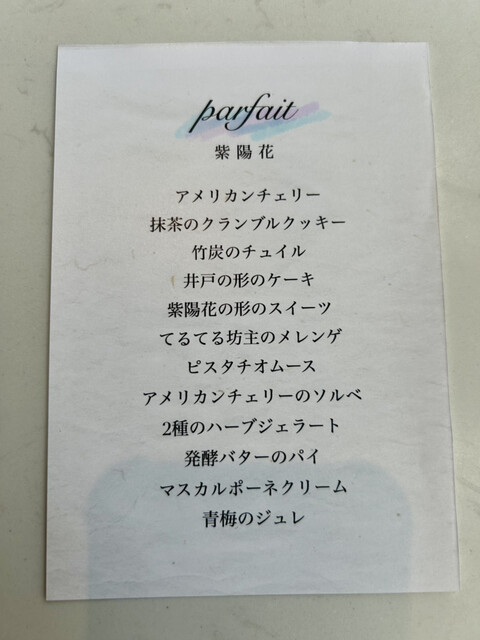 parfait
紫陽花
アメリカンチェリー
抹茶のクランブルクッキー
竹炭のチュイル
井戸の形のケーキ
紫陽花の形のスイーツ
てるてる坊主のメレンゲ
ピスタチオムース
アメリカンチェリーのソルベ
2種のハーブジェラート
発酵バターのパイ
マスカルポーネクリーム
青梅のジュレ